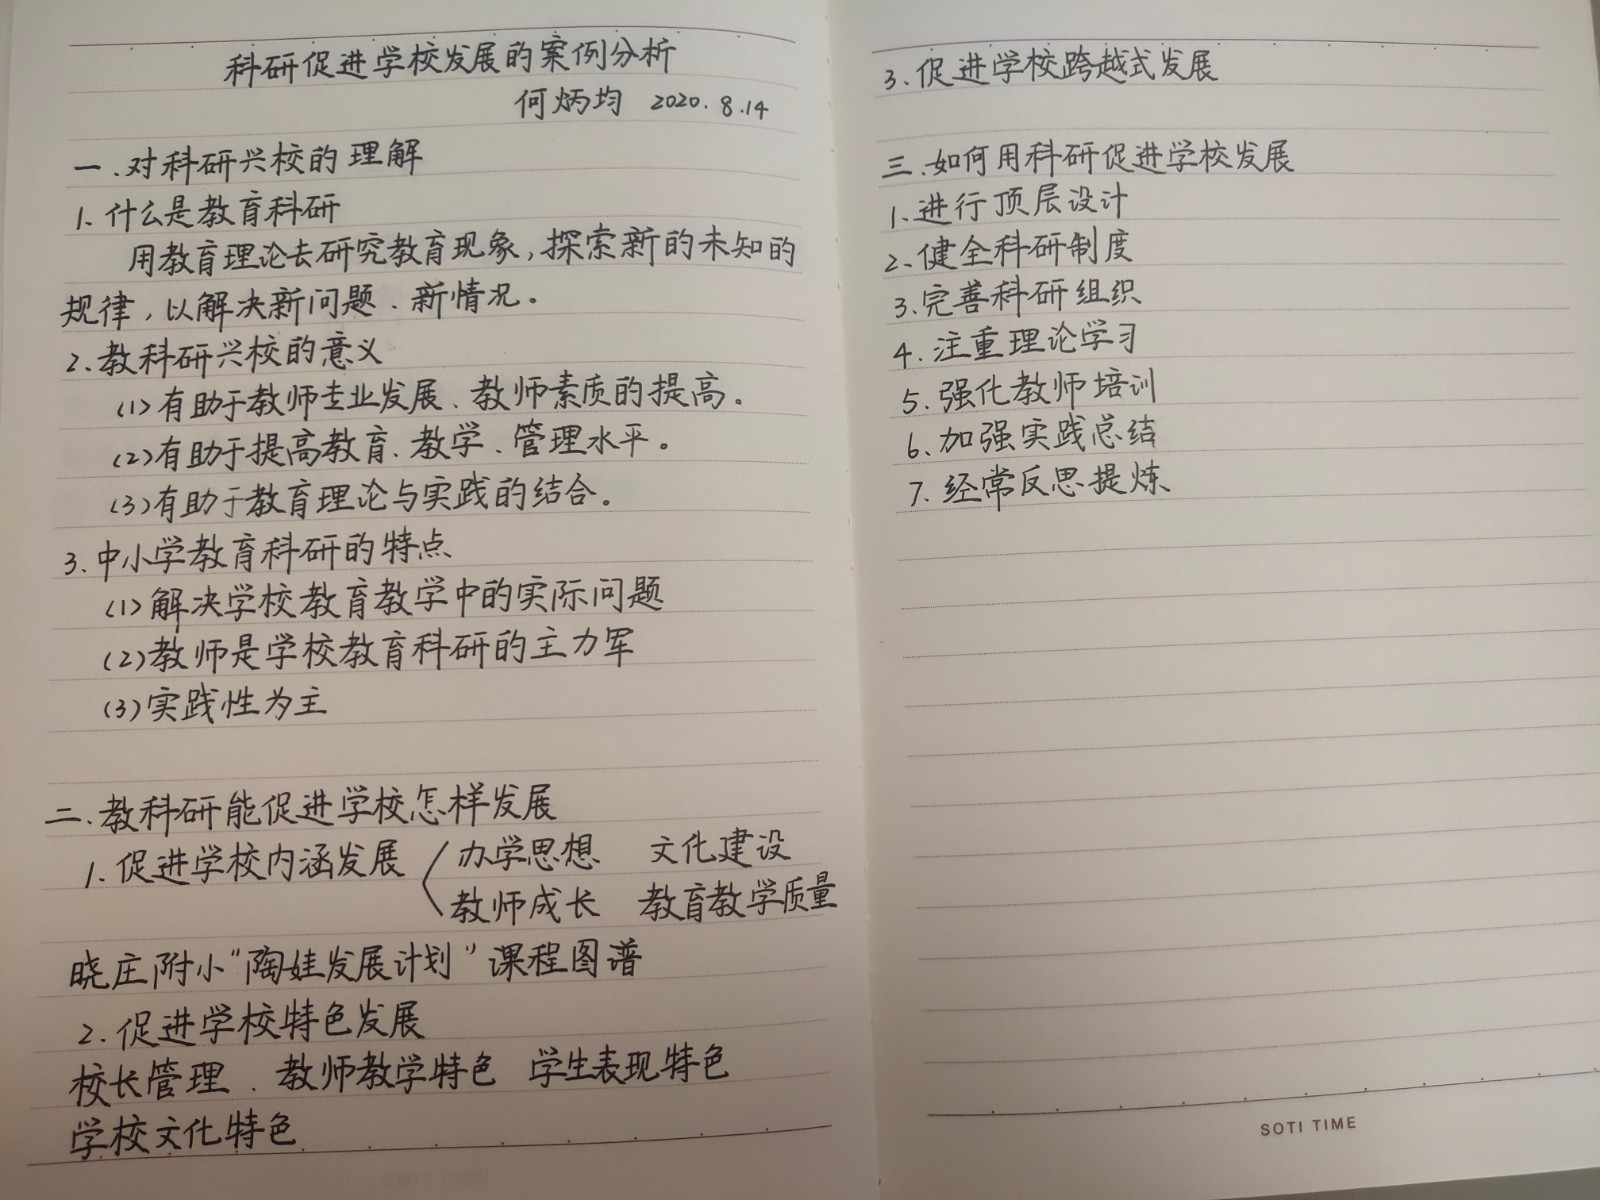 科研促进学校发展的案例分析
何炳均 2020.8.14
一.对科研兴校的理解
1.什么是教育科研
用教育理论去研究教育现象,探索新的未知的
规律,以解决新问题、新情况。
2.教科研兴校的意义
(1)有助于教师专业发展、教师素质的提高。
(2)有助于提高教育、教学、管理水平。
(3)有助于教育理论与实践的结合。
3.中小学教育科研的特点
(1)解决学校教育教学中的实际问题
(2)教师是学校教育科研的主力军
(3)实践性为主
二.教科研能促进学校怎样发展
1.促进学校内涵发展 办学思想 文化建设
教师成长 教育教学质量
晓庄附小“陶娃发展计划”课程图谱
2.促进学校特色发展
校长管理、教师教学特色 学生表现特色
学校文化特色
3.促进学校跨越式发展
三.如何用科研促进学校发展
1.进行顶层设计
2.健全科研制度
3.完善科研组织
4.注重理论学习
5.强化教师培训
6.加强实践总结
7.经常反思提炼
SOTI TIME